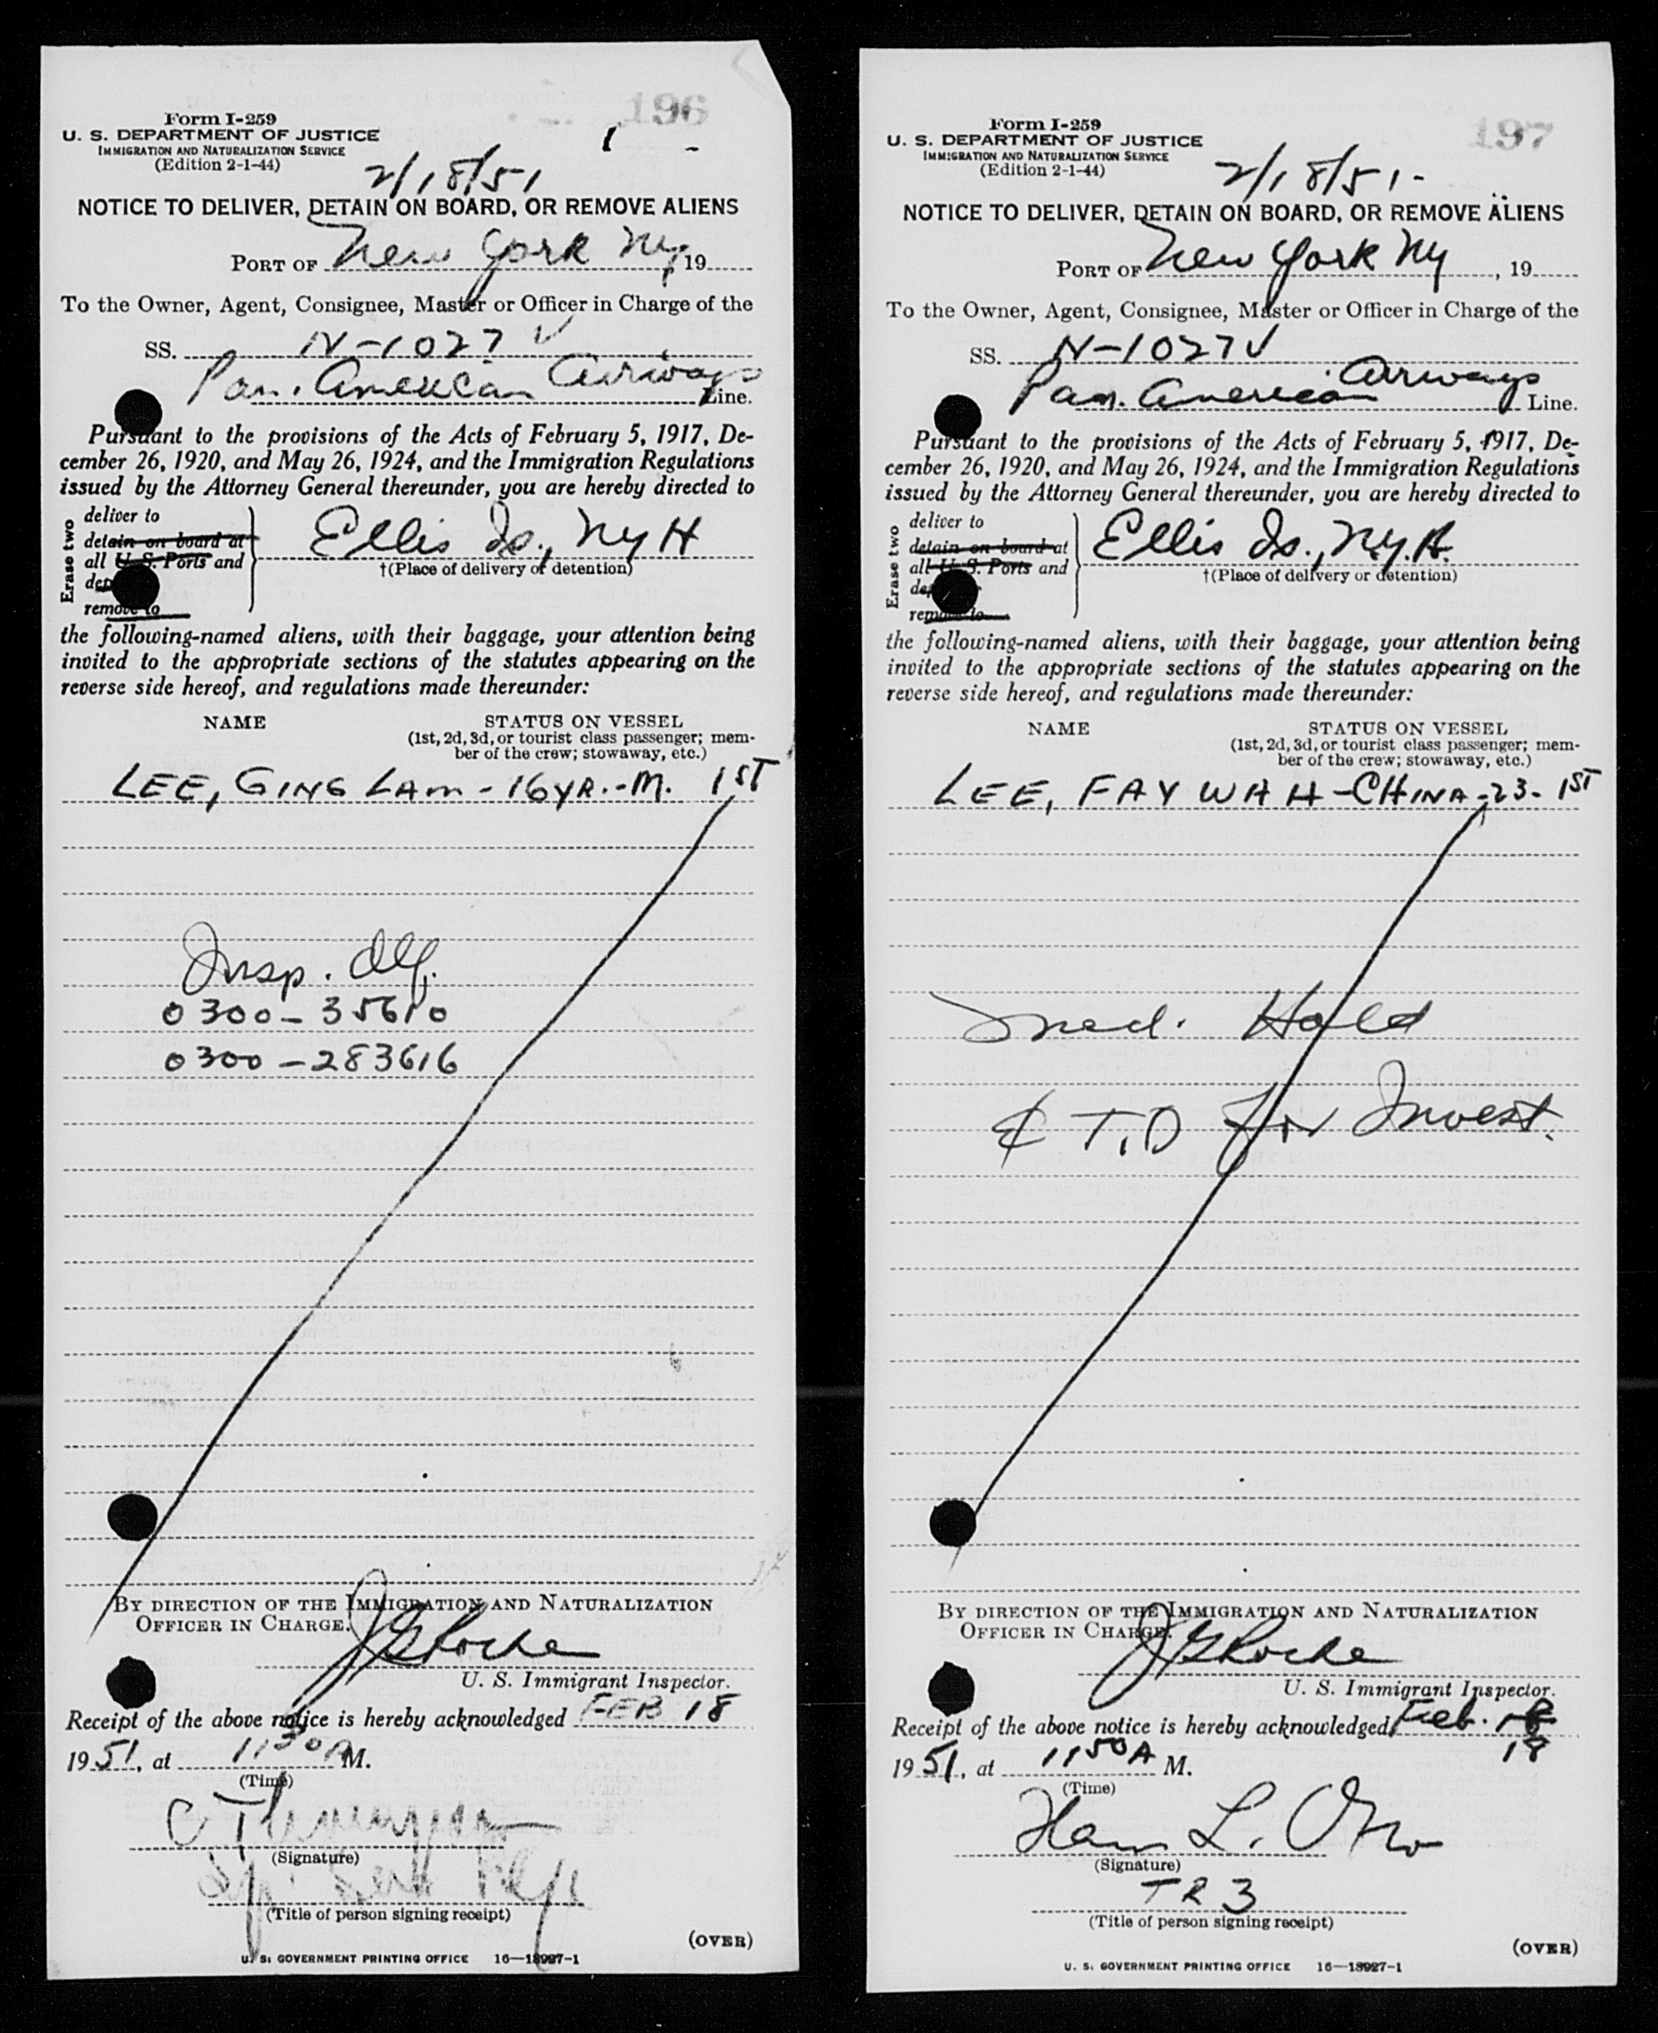 196
Form I-259
U. S. DEPARTMENT OF JUSTICE
IMMIGRATION AND NATURALIZATION SERVICE
(Edition 2-1-44)
2/18/51
NOTICE TO DELIVER, DETAIN ON BOARD, OR REMOVE ALIENS
PORT OF New York Ny, 19
To the Owner, Agent, Consignee, Master or Officer in Charge of the
SS. N-1027 V
Pan. American Airways Line.
Pursuant to the provisions of the Acts of February 5, 1917, De-
cember 26, 1920, and May 26, 1924, and the Immigration Regulations
issued by the Attorney General thereunder, you are hereby directed to
Erase two
deliver to
detain on board at
all U. S. Ports and
remove to
Ellis Is., Ny H
†(Place of delivery or detention)
the following-named aliens, with their baggage, your attention being
invited to the appropriate sections of the statutes appearing on the
reverse side hereof, and regulations made thereunder:
NAME
STATUS ON VESSEL
(1st, 2d, 3d, or tourist class passenger; mem-
ber of the crew; stowaway, etc.)
LEE, GING LAM - 16 YR. - M. 1ST
Insp.
0300 - 35610
0300 - 283616
BY DIRECTION OF THE IMMIGRATION AND NATURALIZATION
OFFICER IN CHARGE.
J G Roche
U. S. Immigrant Inspector.
Receipt of the above notice is hereby acknowledged FEB 18
1951, at 1150 A M.
(Time)
C Thompson
(Signature)
(Title of person signing receipt)
(OVER)
U. S. GOVERNMENT PRINTING OFFICE 16—18927-1
197
Form I-259
U. S. DEPARTMENT OF JUSTICE
IMMIGRATION AND NATURALIZATION SERVICE
(Edition 2-1-44)
2/18/51-
NOTICE TO DELIVER, DETAIN ON BOARD, OR REMOVE ALIENS
PORT OF New York Ny, 19
To the Owner, Agent, Consignee, Master or Officer in Charge of the
SS. N-1027 V
Pan. American Airways Line.
Pursuant to the provisions of the Acts of February 5, 1917, De-
cember 26, 1920, and May 26, 1924, and the Immigration Regulations
issued by the Attorney General thereunder, you are hereby directed to
Erase two
deliver to
detain on board at
all U. S. Ports and
remove to
Ellis Is., N.y.H.
†(Place of delivery or detention)
the following-named aliens, with their baggage, your attention being
invited to the appropriate sections of the statutes appearing on the
reverse side hereof, and regulations made thereunder:
NAME
STATUS ON VESSEL
(1st, 2d, 3d, or tourist class passenger; mem-
ber of the crew; stowaway, etc.)
LEE, FAY WAH - CHINA - 23 - 1ST
Med. Hold
& T.D for Invest.
BY DIRECTION OF THE IMMIGRATION AND NATURALIZATION
OFFICER IN CHARGE.
J G Roche
U. S. Immigrant Inspector.
Receipt of the above notice is hereby acknowledged Feb. 18
18
1951, at 1150 A M.
(Time)
L.
(Signature)
TR 3
(Title of person signing receipt)
(OVER)
U. S. GOVERNMENT PRINTING OFFICE 16—18927-1